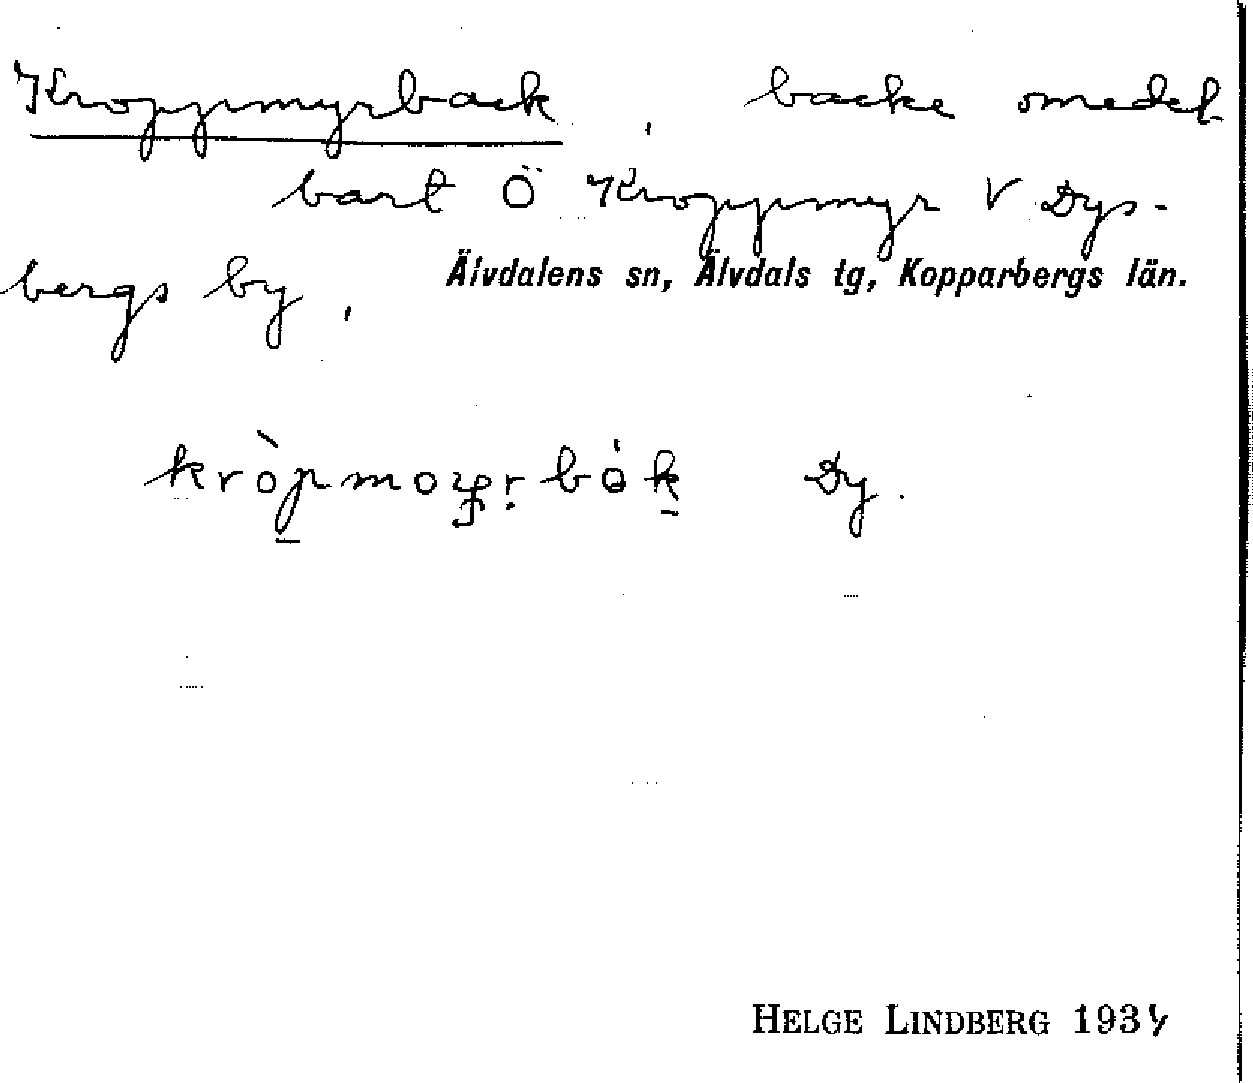 Kroppmyrback, backe omedel
bart Ö Kroppmyr V Dys-
bergs by,
Älvdalens sn, Älvdals tg, Kopparbergs län.
Dy.
HELGE LINDBERG 193